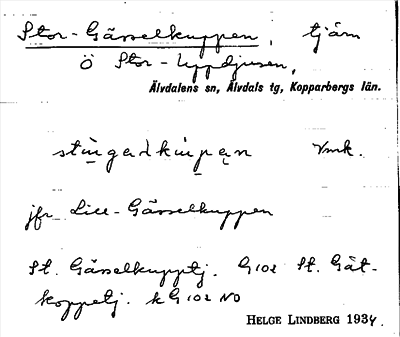 Stor-Gässelkuppen, tjärn
Ö Stor-Uppdjusen,
Älvdalens sn, Älvdals tg, Kopparbergs län.
Vmk.
jfr Lill-Gässelkuppen
St. Gässelkupptj. G102 St. Gät-
koppelj. k G102 NO
HELGE LINDBERG 1934.